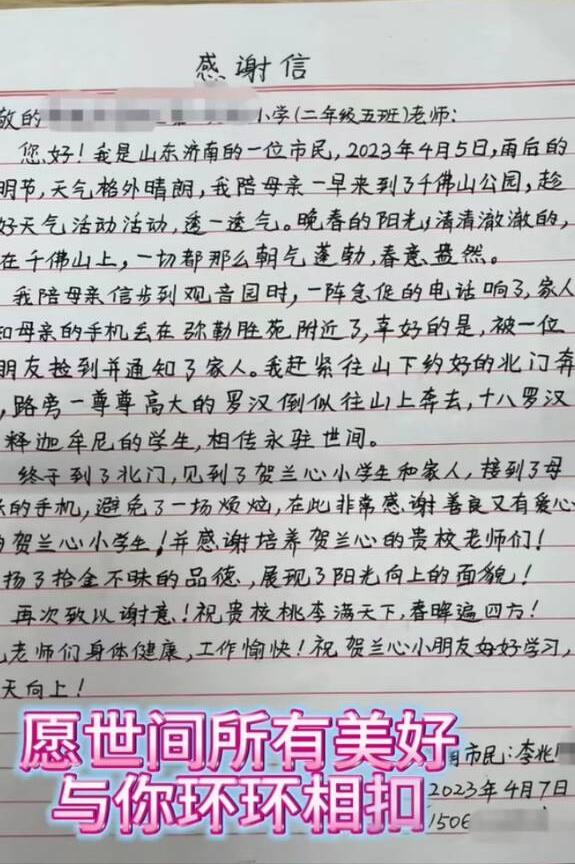 感谢信
敬的 小学(二年级五班)老师:
您好!我是山东济南的一位市民,2023年4月5日,雨后的
明节,天气格外晴朗,我陪母亲一早来到了千佛山公园,趁
好天气活动活动,透一透气。晚春的阳光,清清澈澈的,
在千佛山上,一切都那么朝气蓬勃,春意盎然。
我陪母亲信步到观音园时,一阵急促的电话响了,家人
知母亲的手机丢在弥勒胜苑附近了,幸好的是,被一位
朋友捡到并通知了家人。我赶紧往山下约好的北门奔
,路旁一尊尊高大的罗汉倒似往山上奔去,十八罗汉
释迦牟尼的学生,相传永驻世间。
终于到了北门,见到了贺兰心小学生和家人,接到了母
的手机,避免了一场烦恼,在此非常感谢善良又有爱心
的贺兰心小学生!并感谢培养贺兰心的贵校老师们!
扬了拾金不昧的品德,展现了阳光向上的面貌!
再次致以谢意!祝贵校桃李满天下,春晖遍四方!
老师们身体健康,工作愉快!祝贺兰心小朋友好好学习,
天向上!
愿世间所有美好
与你环环相扣
市民:李兆
2023年4月7日
1506